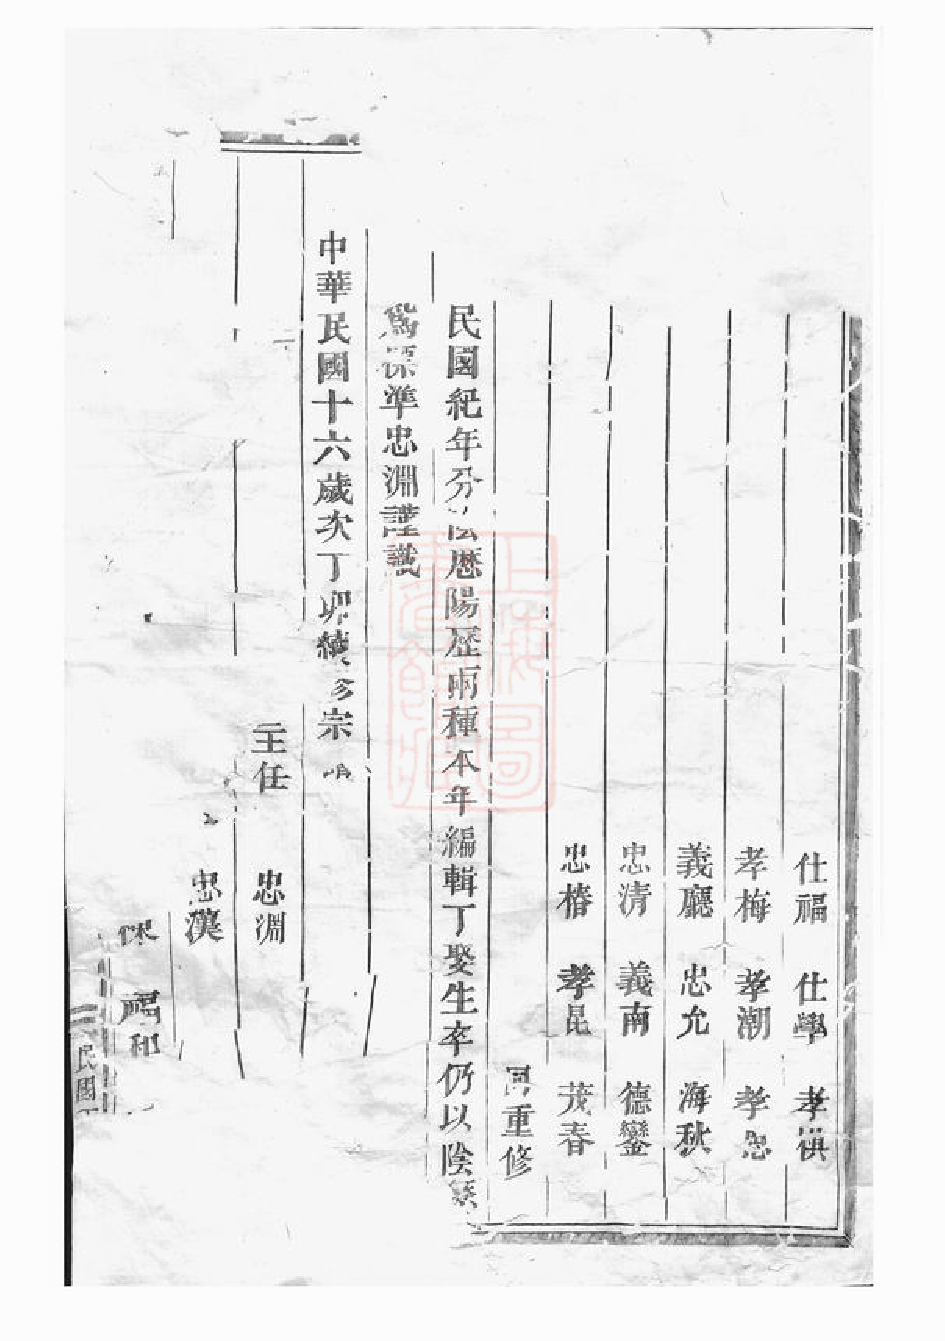 仕福 仕學 孝祺
孝梅 孝潮 孝思
義廳 忠允 海秋
忠清 義南 德鑾
忠椿 孝昆 茂春
同重修
民國紀年分陰歷陽歷兩種本年編輯丁娶生卒仍以陰歷
為標準忠淵謹識
中華民國十六歲次丁卯續修宗
主任 忠淵
忠漢
福和
民國
上海圖書館藏